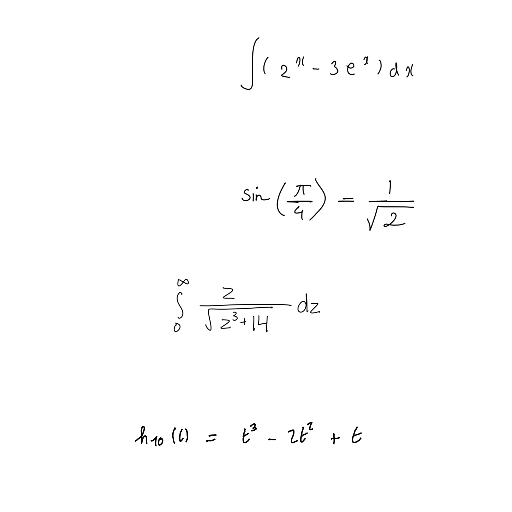 ∫(2^x - 3e^x)dx
sin(π/4) = 1/√2
∫_0^∞ z/√(z^3+14) dz
h_10(t) = t^3 - 2t^2 + t